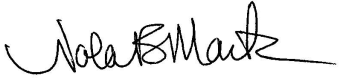 Nola B Martz